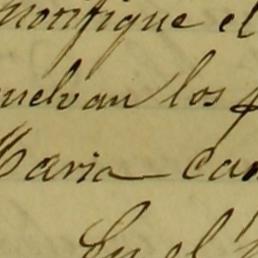 notifique el
uelvan los
Maria
En el